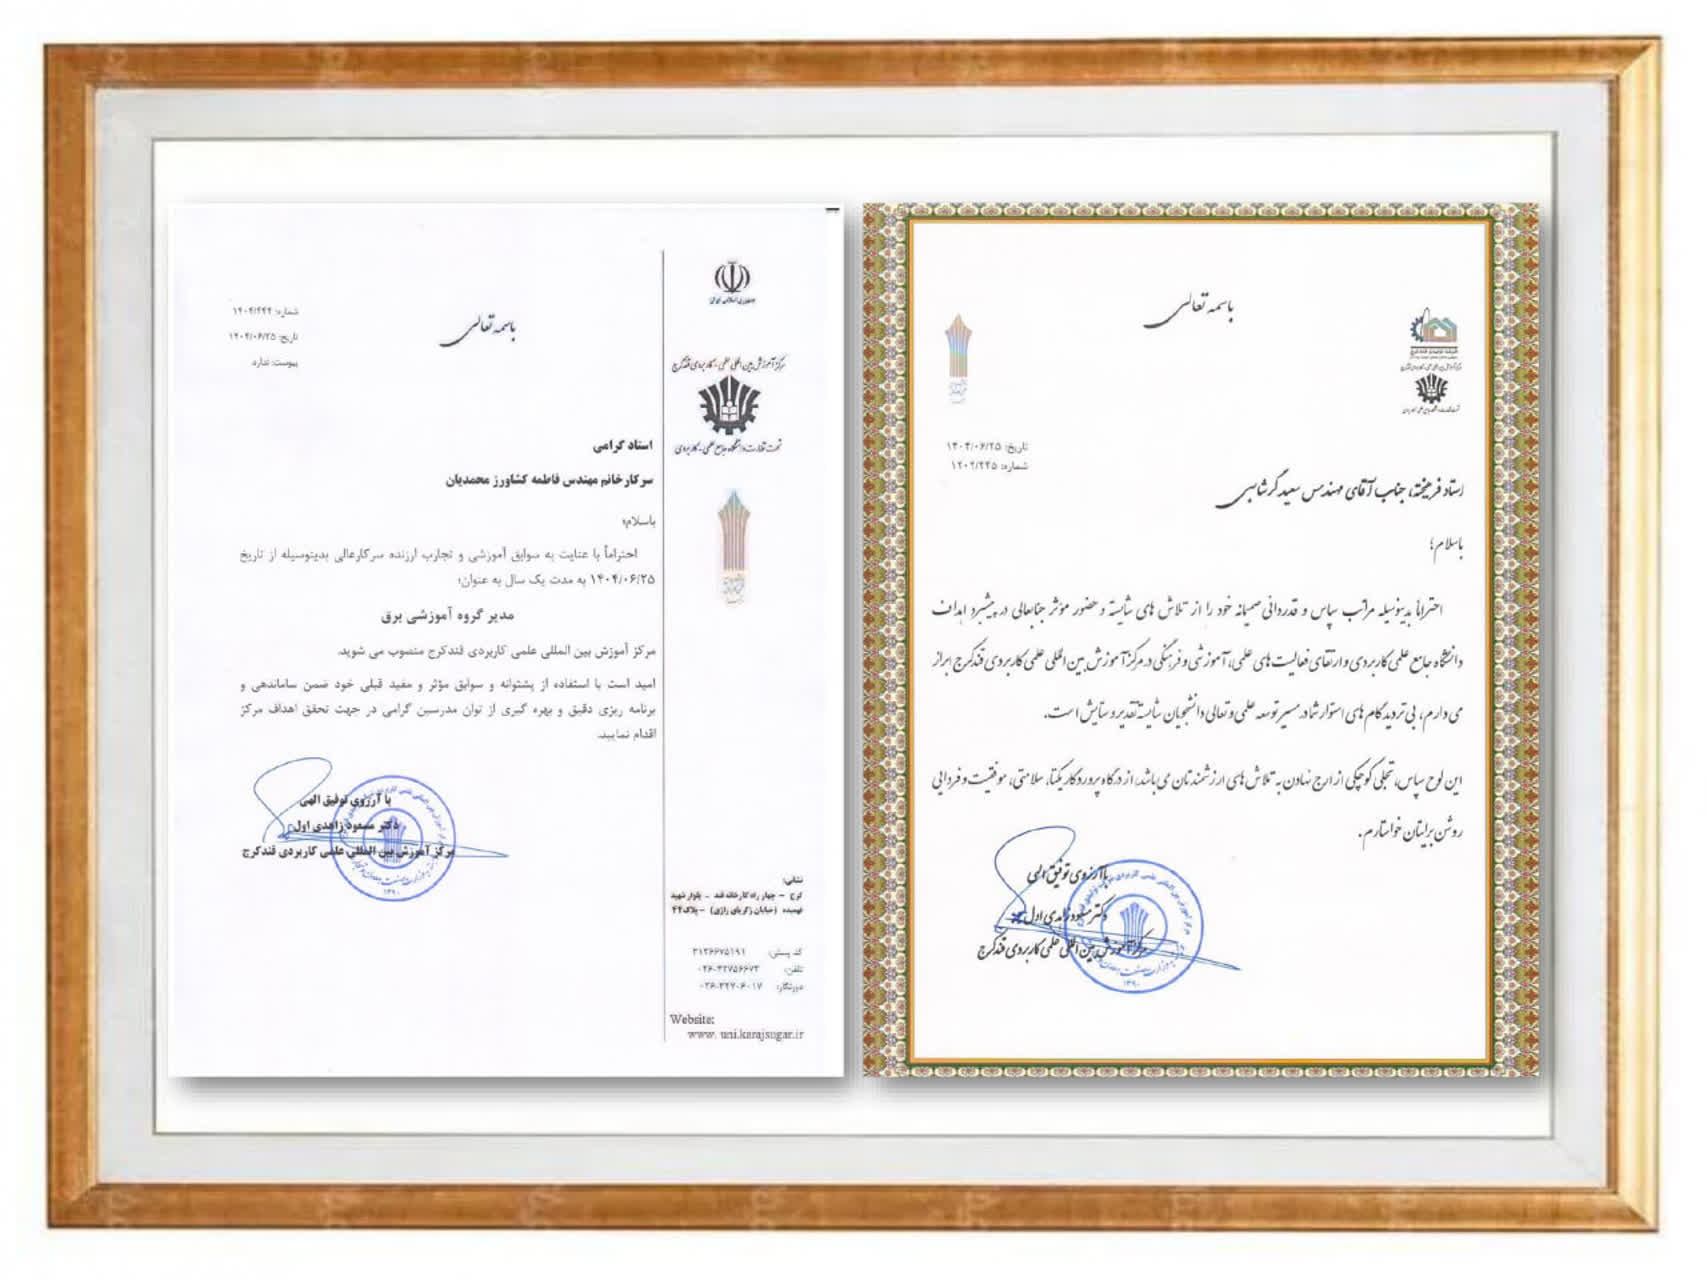 باسمه تعالی
تاریخ: ۱۴۰۴/۰۶/۲۵
شماره: ۱۴۰۴/۴۴۵
استاد فرهیخته، جناب آقای مهندس سعید گرشاسبی
باسلام؛
احتراما بدینوسیله مراتب سپاس و قدردانی صمیمانه خود را از تلاش های شایسته و حضور مؤثر جنابعالی در پیشبرد اهداف
دانشگاه جامع علمی کاربردی و ارتقای فعالیت های علمی، آموزشی و فرهنگی در مرکز آموزش بین المللی علمی کاربردی قند کرج ابراز
می دارم، بی تردید گام های استوار شما در مسیر توسعه علمی و تعالی دانشجویان شایسته تقدیر و ستایش است.
این لوح سپاس، تجلی کوچکی از ارج نهادن به تلاش های ارزشمندتان می باشد، از درگاه پروردگار یکتا، سلامتی، موفقیت و فردایی
روشن برایتان خواستارم.
باآرزوی توفیق الهی
دکتر مسعود زاهدی اول
مرکز آموزش بین المللی علمی کاربردی قند کرج
۱۳۹۰
جمهوری اسلامی ایران
باسمه تعالی
شماره: ۱۴۰۴/۴۴۴
تاریخ: ۱۴۰۴/۰۶/۲۵
پیوست: ندارد
مرکز آموزش بین المللی علمی - کاربردی قند کرج
تحت نظارت دانشگاه جامع علمی - کاربردی
استاد گرامی
سرکارخانم مهندس فاطمه کشاورز محمدیان
باسلام؛
احتراماً با عنایت به سوابق آموزشی و تجارب ارزنده سرکارعالی بدینوسیله از تاریخ
۱۴۰۴/۰۶/۲۵ به مدت یک سال به عنوان؛
مدیر گروه آموزشی برق
مرکز آموزش بین المللی علمی کاربردی قندکرج منصوب می شوید.
امید است با استفاده از پشتوانه و سوابق مؤثر و مفید قبلی خود ضمن ساماندهی و
برنامه ریزی دقیق و بهره گیری از توان مدرسین گرامی در جهت تحقق اهداف مرکز
اقدام نمایید.
با آرزوی توفیق الهی
دکتر مسعود زاهدی اول
مرکز آموزش بین المللی علمی کاربردی قندکرج
۱۳۹۰
نشانی:
کرج – چهار راه کارخانه قند – بلوار شهید
فهمیده (خیابان زکریای رازی) – پلاک۴۴
کد پستی: ۳۱۳۶۶۷۵۱۹۱
تلفن: ۰۲۶-۳۲۷۵۶۶۷۳
دورنگار: ۰۲۶-۳۲۷۰۶۰۱۷
Website:
www. uni.karajsugar.ir